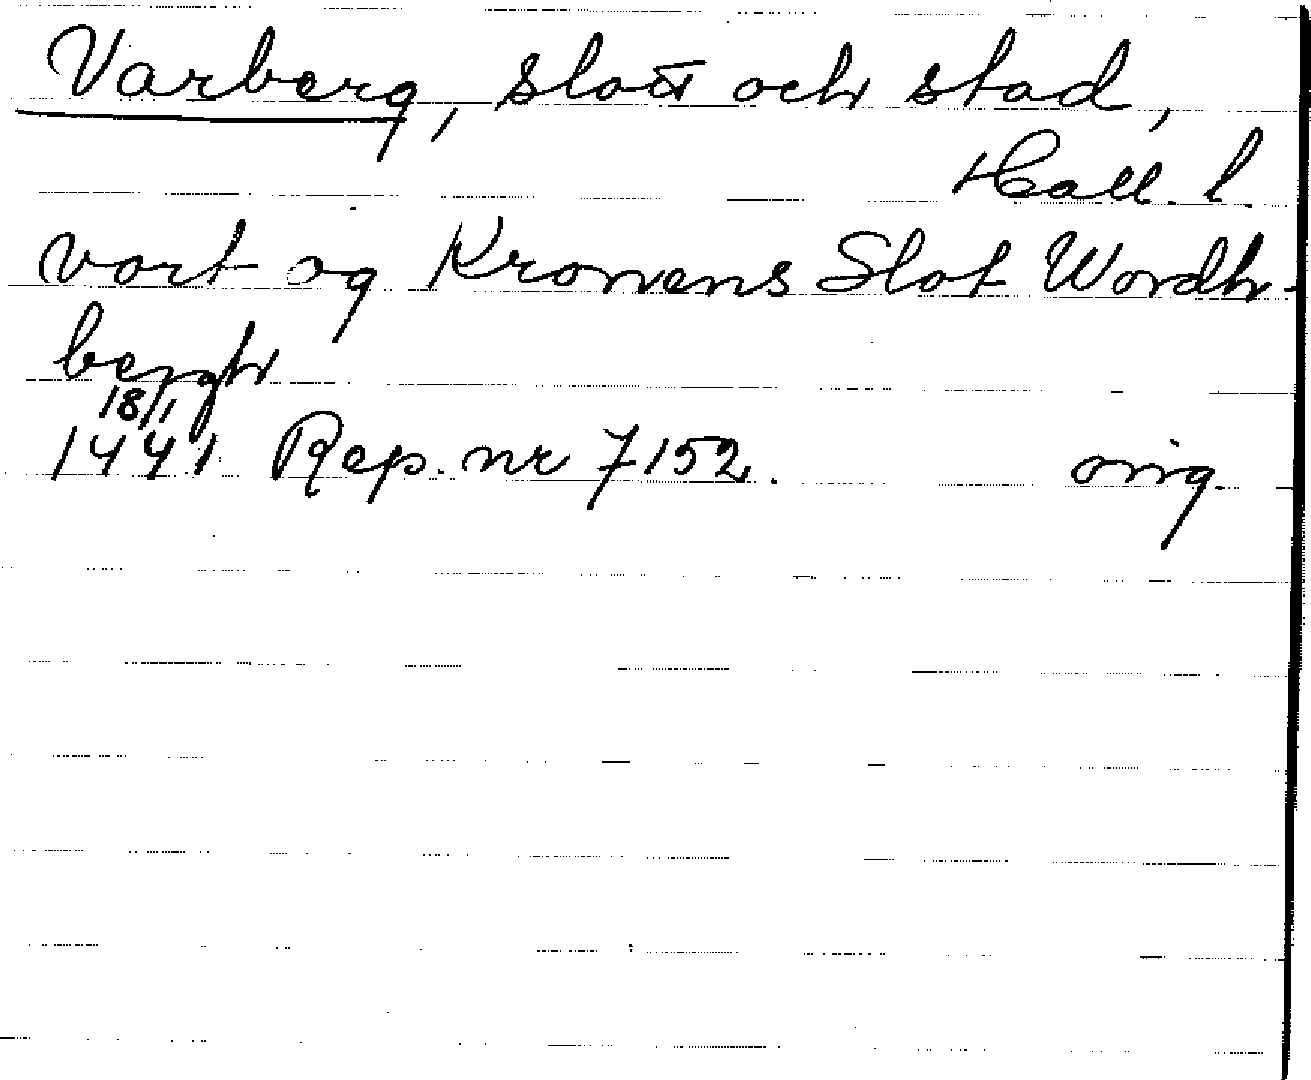 Varberg, slott och stad,
Hall. l.
vort og Kronens Slot Wordh-
bergh
18/1
1441 Rep. nr 7152. orig.